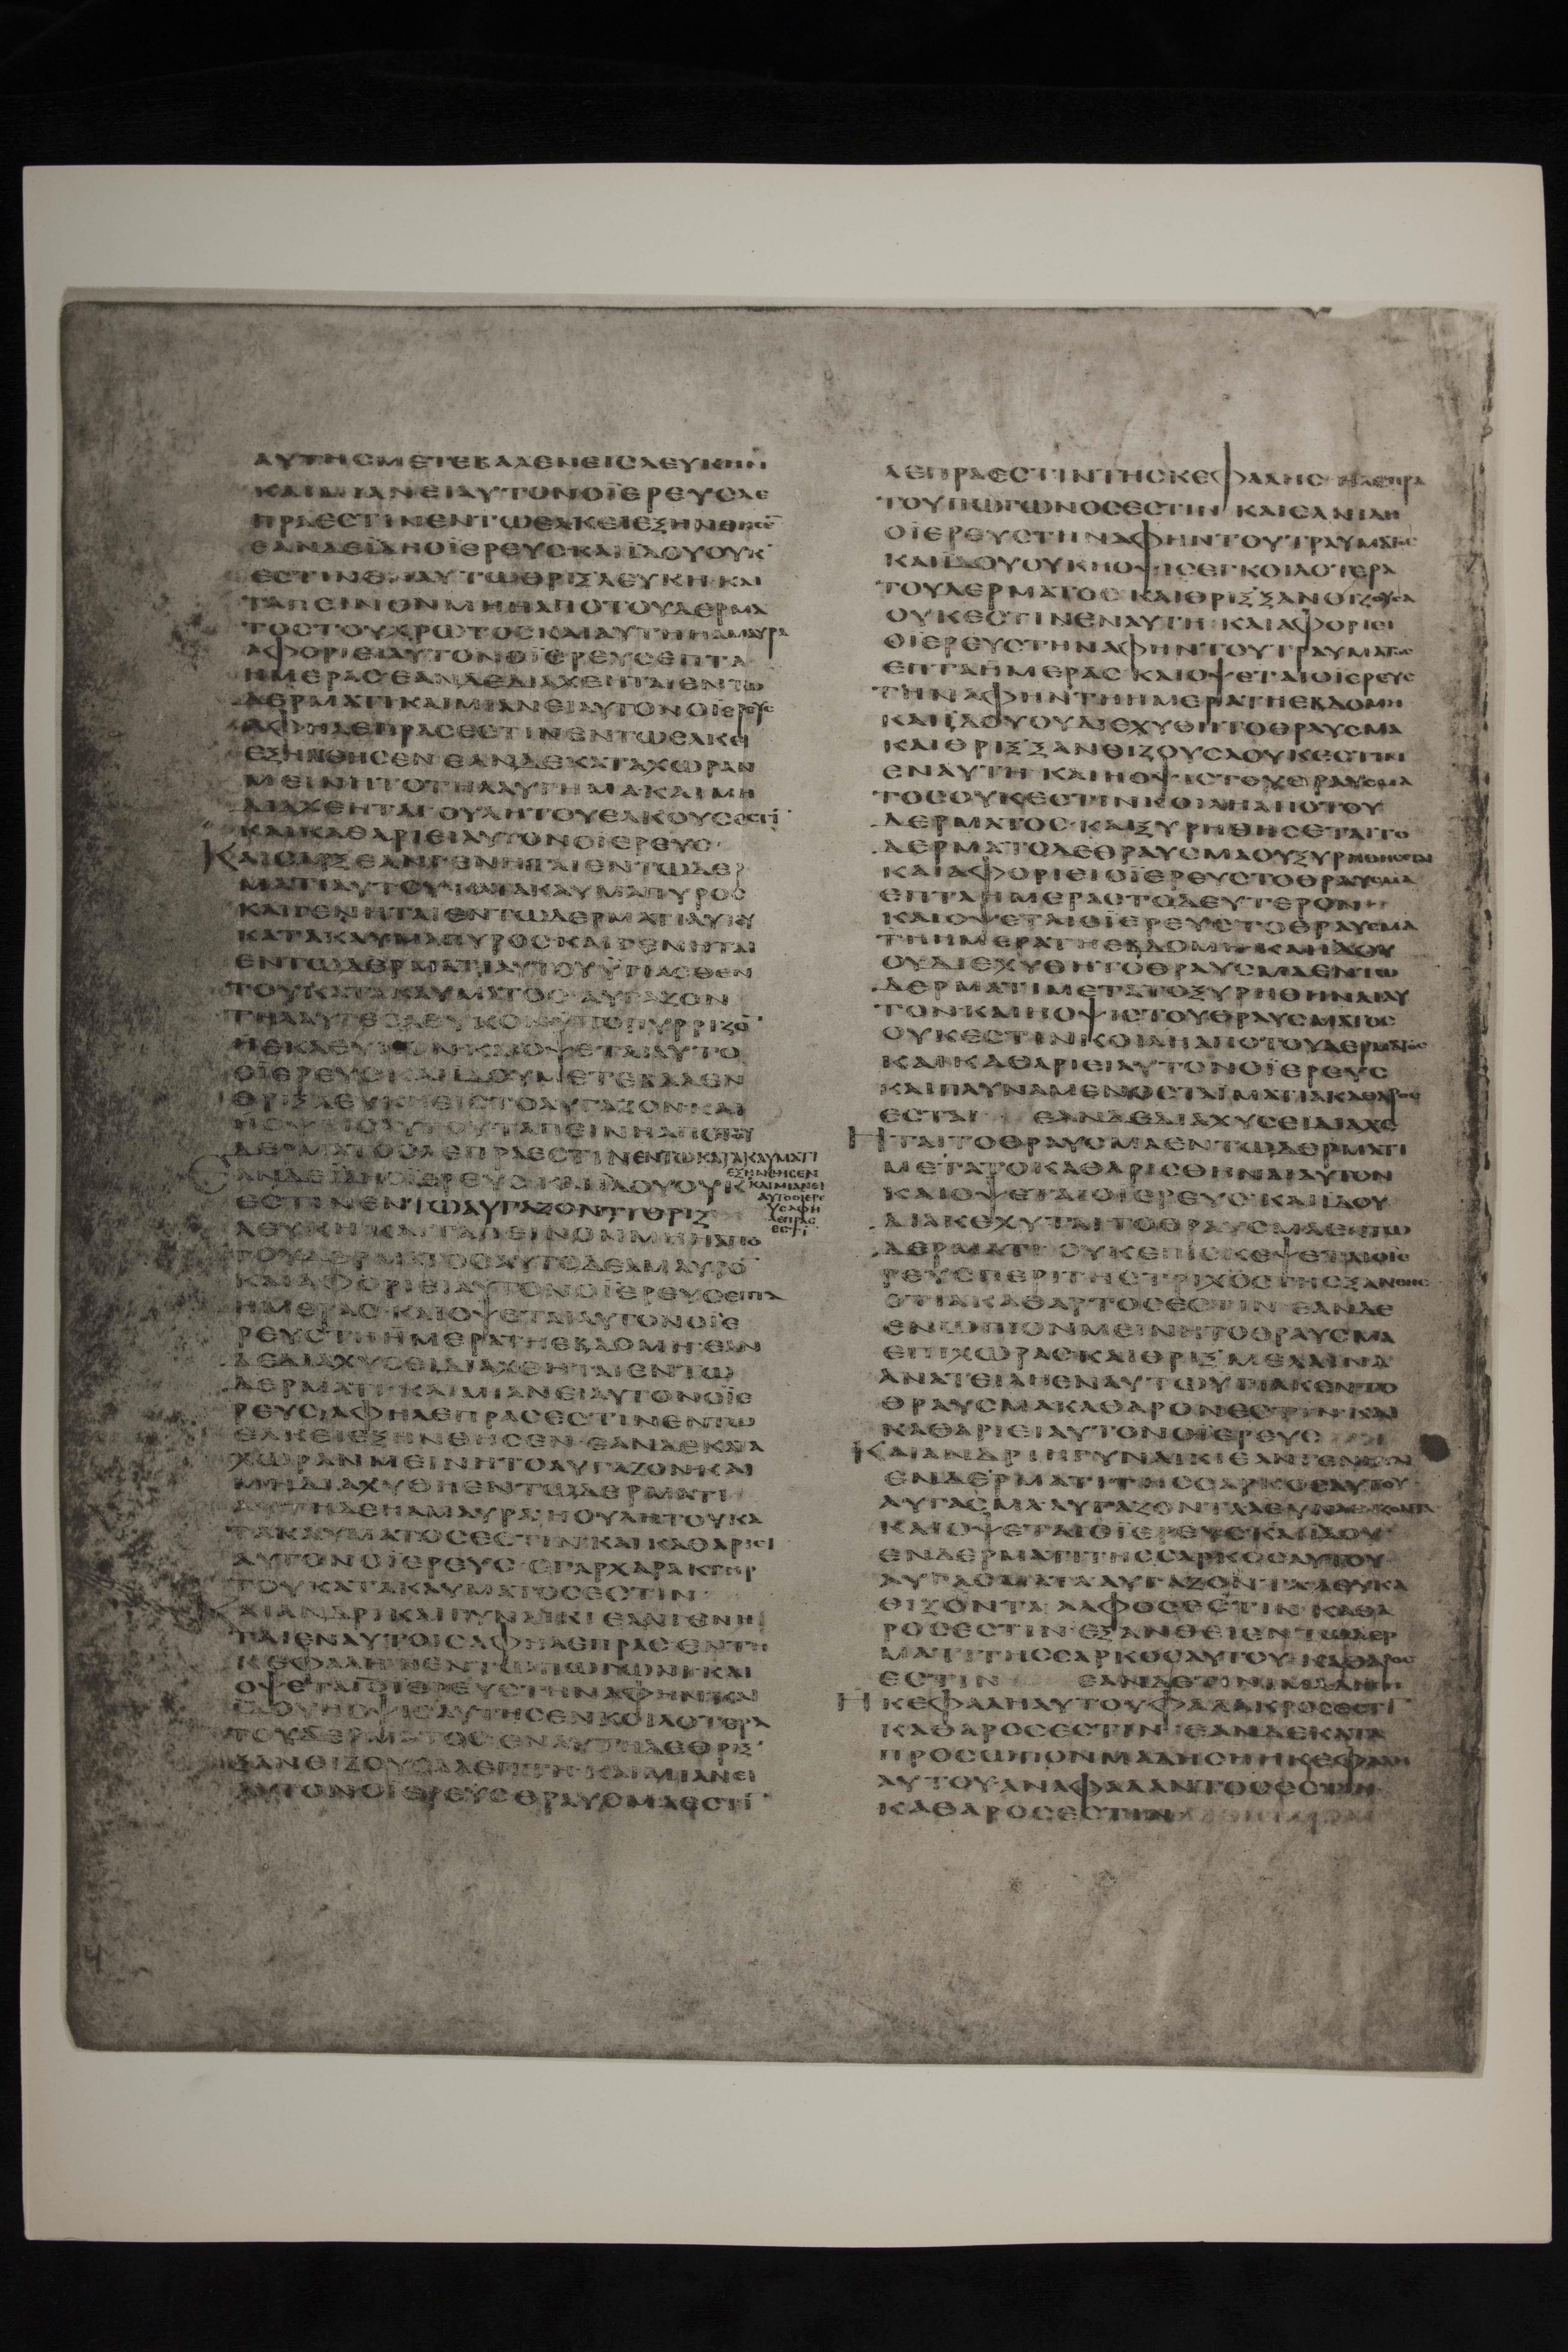 ΑΥΤΗCΜΕΤΕΒΑΛΕΝΕΙCΛΕΥΚΗΝ
ΚΑΙΜΙΑΝΕΙΑΥΤΟΝΟΪΕΡΕΥCΛΕ
ΠΡΑΕCΤΙΝΕΝΤΩΕΛΚΕΙΕΞΗΝΘΗCΕ̄
ΕΑΝΔΕΪΔΗΟΪΕΡΕΥCΚΑΙΪΔΟΥΟΥΚ
ΕCΤΙΝΕΝΑΥΤΩΘΡΙΞΛΕΥΚΗΚΑΙ
ΤΑΠΕΙΝΟΝΜΗΗΑΠΟΤΟΥΔΕΡΜΑ
ΤΟCΤΟΥΧΡΩΤΟCΚΑΙΑΥΤΗΗΑΜΑΥΡΑ
ΑΦΟΡΙΕΙΑΥΤΟΝΟΪΕΡΕΥCΕΠΤΑ
ΗΜΕΡΑCΕΑΝΔΕΔΙΑΧΕΗΤΑΙΕΝΤΩ
ΔΕΡΜΑΤΙΚΑΙΜΙΑΝΕΙΑΥΤΟΝΟΪΕΡΕΥC
ΑΦΗΛΕΠΡΑCΕCΤΙΝΕΝΤΩΕΛΚΕΙ
ΕΞΗΝΘΗCΕΝΕΑΝΔΕΚΑΤΑΧΩΡΑΝ
ΜΕΙΝΗΤΟΤΗΛΑΥΓΗΜΑΚΑΙΜΗ
ΔΙΑΧΕΗΤΑΙΟΥΛΗΤΟΥΕΛΚΟΥCΕCΤῙ
ΚΑΙΚΑΘΑΡΙΕΙΑΥΤΟΝΟΪΕΡΕΥC
ΚΑΙCΑΡΞΕΑΝΓΕΝΗΤΑΙΕΝΤΩΔΕΡ
ΜΑΤΙΑΥΤΟΥΚΑΤΑΚΑΥΜΑΠΥΡΟC
ΚΑΙΓΕΝΗΤΑΙΕΝΤΩΔΕΡΜΑΤΙΑΥΤΟΥ
ΚΑΤΑΚΑΥΜΑΠΥΡΟCΚΑΙΓΕΝΗΤΑΙ
ΕΝΤΩΔΕΡΜΑΤΙΑΥΤΟΥΫΓΙΑCΘΕΝ
ΤΟΥΚΑΤΑΚΑΥΜΑΤΟCΑΥΓΑΖΟΝ
ΤΗΛΑΥΓΕCΛΕΥΚΟΝΫΠΟΠΥΡΡΙΖΟ̄
ΗΕΚΛΕΥΚΟΝΚΑΙΟΨΕΤΑΙΑΥΤΟ
ΟΪΕΡΕΥCΚΑΙΪΔΟΥΜΕΤΕΒΑΛΕΝ
ΘΡΙΞΛΕΥΚΗΕΙCΤΟΑΥΓΑΖΟΝΚΑΙ
ΗΟΨΙCΑΥΤΟΥΤΑΠΕΙΝΗΑΠΟΤΟΥ
ΔΕΡΜΑΤΟCΛΕΠΡΑΕCΤΙΝΕΝΤΩΚΑΤΑΚΑΥΜΑΤΙ
ΕΞΗΝΘΗCΕΝ
ΚΑΙΜΙΑΝΕΙ
ΑΥΤΟ̄ΟΪΕΡΕ
ΥCΑΦΗ
ΛΕΠΡΑC
ΕCΤῙ
ΕΑΝΔΕΪΔΗΟΪΕΡΕΥCΚΑΙΪΔΟΥΟΥΚ
ΕCΤΙΝΕΝΤΩΑΥΓΑΖΟΝΤΙΘΡΙΞ
ΛΕΥΚΗΚΑΙΤΑΠΕΙΝΟΝΜΗΗΑΠΟ
ΤΟΥΔΕΡΜΑΤΟCΑΥΤΟΔΕΑΜΑΥΡΟ̄
ΚΑΙΑΦΟΡΙΕΙΑΥΤΟΝΟΪΕΡΕΥCΕΠΤΑ
ΗΜΕΡΑCΚΑΙΟΨΕΤΑΙΑΥΤΟΝΟΪΕ
ΡΕΥCΤΗΗΜΕΡΑΤΗΕΒΔΟΜΗΕΑΝ
ΔΕΔΙΑΧΥCΕΙΔΙΑΧΕΗΤΑΙΕΝΤΩ
ΔΕΡΜΑΤΙΚΑΙΜΙΑΝΕΙΑΥΤΟΝΟΪΕ
ΡΕΥCΑΦΗΛΕΠΡΑCΕCΤΙΝΕΝΤΩ
ΕΛΚΕΙΕΞΗΝΘΗCΕΝΕΑΝΔΕΚΑΤΑ
ΧΩΡΑΝΜΕΙΝΗΤΟΑΥΓΑΖΟΝΚΑΙ
ΜΗΔΙΑΧΥΘΗΕΝΤΩΔΕΡΜΑΤΙ
ΑΥΤΗΔΕΗΑΜΑΥΡΑΗΟΥΛΗΤΟΥΚΑ
ΤΑΚΑΥΜΑΤΟCΕCΤΙΝΚΑΙΚΑΘΑΡΙΕΙ
ΑΥΤΟΝΟΪΕΡΕΥCΟΓΑΡΧΑΡΑΚΤΗΡ
ΤΟΥΚΑΤΑΚΑΥΜΑΤΟCΕCΤΙΝ
ΚΑΙΑΝΔΡΙΚΑΙΓΥΝΑΙΚΙΕΑΝΓΕΝΗ
ΤΑΙΕΝΑΥΤΟΙCΑΦΗΛΕΠΡΑCΕΝΤΗ
ΚΕΦΑΛΗΗΕΝΤΩΠΩΓΩΝΙΚΑΙ
ΟΨΕΤΑΙΟΪΕΡΕΥCΤΗΝΑΦΗΝΚΑΙ
ΪΔΟΥΗΟΨΙCΑΥΤΗCΕΝΚΟΙΛΟΤΕΡΑ
ΤΟΥΔΕΡΜΑΤΟCΕΝΑΥΤΗΔΕΘΡΙΞ
ΞΑΝΘΙΖΟΥCΑΛΕΠΤΗΚΑΙΜΙΑΝΕΙ
ΑΥΤΟΝΟΪΕΡΕΥCΘΡΑΥCΜΑΕCΤῙ
ΛΕΠΡΑΕCΤΙΝΤΗCΚΕΦΑΛΗCΗΛΕΠΡΑ
ΤΟΥΠΩΓΩΝΟCΕCΤΙΝΚΑΙΕΑΝΙΔΗ
ΟΪΕΡΕΥCΤΗΝΑΦΗΝΤΟΥΤΡΑΥΜΑΤΟC
ΚΑΙΪΔΟΥΟΥΚΗΟΨΙCΕΓΚΟΙΛΟΤΕΡΑ
ΤΟΥΔΕΡΜΑΤΟCΚΑΙΘΡΙΞΞΑΝΘΙΖΟΥCΑ
ΟΥΚΕCΤΙΝΕΝΑΥΤΗΚΑΙΑΦΟΡΙΕΙ
ΟΪΕΡΕΥCΤΗΝΑΦΗΝΤΟΥΤΡΑΥΜΑΤΟC
ΕΠΤΑΗΜΕΡΑCΚΑΙΟΨΕΤΑΙΟΪΕΡΕΥC
ΤΗΝΑΦΗΝΤΗΗΜΕΡΑΤΗΕΒΔΟΜΗ
ΚΑΙΪΔΟΥΟΥΔΙΕΧΥΘΗΤΟΘΡΑΥCΜΑ
ΚΑΙΘΡΙΞΞΑΝΘΙΖΟΥCΑΟΥΚΕCΤΙΝ
ΕΝΑΥΤΗΚΑΙΗΟΨΙCΤΟΥΘΡΑΥCΜΑ
ΤΟCΟΥΚΕCΤΙΝΚΟΙΛΗΑΠΟΤΟΥ
ΔΕΡΜΑΤΟCΚΑΙΞΥΡΗΘΗCΕΤΑΙΤΟ
ΔΕΡΜΑΤΟΔΕΘΡΑΥCΜΑΟΥΞΥΡΗΘΗCΕΤΑΙ
ΚΑΙΑΦΟΡΙΕΙΟΪΕΡΕΥCΤΟΘΡΑΥCΜΑ
ΕΠΤΑΗΜΕΡΑCΤΟΔΕΥΤΕΡΟΝ
ΚΑΙΟΨΕΤΑΙΟΪΕΡΕΥCΤΟΘΡΑΥCΜΑ
ΤΗΗΜΕΡΑΤΗΕΒΔΟΜΗΚΑΙΪΔΟΥ
ΟΥΔΙΕΧΥΘΗΤΟΘΡΑΥCΜΑΕΝΤΩ
ΔΕΡΜΑΤΙΜΕΤΑΤΟΞΥΡΗΘΗΝΑΙΑΥ
ΤΟΝΚΑΙΗΟΨΙCΤΟΥΘΡΑΥCΜΑΤΟC
ΟΥΚΕCΤΙΝΚΟΙΛΗΑΠΟΤΟΥΔΕΡΜΑΤΟC
ΚΑΙΚΑΘΑΡΙΕΙΑΥΤΟΝΟΪΕΡΕΥC
ΚΑΙΠΛΥΝΑΜΕΝΟCΤΑΪΜΑΤΙΑΚΑΘΑΡΟC
ΕCΤΑΙ ΕΑΝΔΕΔΙΑΧΥCΕΙΔΙΑΧΕ
ΗΤΑΙΤΟΘΡΑΥCΜΑΕΝΤΩΔΕΡΜΑΤΙ
ΜΕΤΑΤΟΚΑΘΑΡΙCΘΗΝΑΙΑΥΤΟΝ
ΚΑΙΟΨΕΤΑΙΟΪΕΡΕΥCΚΑΙΪΔΟΥ
ΔΙΑΚΕΧΥΤΑΙΤΟΘΡΑΥCΜΑΕΝΤΩ
ΔΕΡΜΑΤΙΟΥΚΕΠΙCΚΕΨΕΤΑΙΟΪΕ
ΡΕΥCΠΕΡΙΤΗCΤΡΙΧΟCΤΗCΞΑΝΘΗC
ΟΤΙΑΚΑΘΑΡΤΟCΕCΤΙΝΕΑΝΔΕ
ΕΝΩΠΙΟΝΜΕΙΝΗΤΟΘΡΑΥCΜΑ
ΕΠΙΧΩΡΑCΚΑΙΘΡΙΞΜΕΛΑΙΝΑ
ΑΝΑΤΕΙΛΗΕΝΑΥΤΩΥΓΙΑΚΕΝΤΟ
ΘΡΑΥCΜΑΚΑΘΑΡΟΝΕCΤΙΝΚΑΙ
ΚΑΘΑΡΙΕΙΑΥΤΟΝΟΪΕΡΕΥC
ΚΑΙΑΝΔΡΙΗΓΥΝΑΙΚΙΕΑΝΓΕΝΗΤΑΙ
ΕΝΔΕΡΜΑΤΙΤΗCCΑΡΚΟCΑΥΤΟΥ
ΑΥΓΑCΜΑΑΥΓΑΖΟΝΤΑ
ΚΑΙΟΨΕΤΑΙΟΪΕΡΕΥCΚΑΙΪΔΟΥ
ΕΝΔΕΡΜΑΤΙΤΗCCΑΡΚΟCΑΥΤΟΥ
ΑΥΓΑCΜΑΤΑΑΥΓΑΖΟΝΤΑΛΕΥΚΑ
ΘΙΖΟΝΤΑΑΛΦΟCΕCΤΙΝΚΑΘΑ
ΡΟCΕCΤΙΝΕΞΑΝΘΕΙΕΝΤΩΔΕΡ
ΜΑΤΙΤΗCCΑΡΚΟCΑΥΤΟΥΚΑΘΑΡΟC
ΕCΤΙΝ ΕΑΝΔΕΤΙΝΙΜΑΔΗCΗ
ΗΚΕΦΑΛΗΑΥΤΟΥΦΑΛΑΚΡΟCΕCΤῙ
ΚΑΘΑΡΟCΕCΤΙΝΕΑΝΔΕΚΑΤΑ
ΠΡΟCΩΠΟΝΜΑΔΗCΗΗΚΕΦΑΛΗ
ΑΥΤΟΥΑΝΑΦΑΛΑΝΤΟCΕCΤΙΝ
ΚΑΘΑΡΟCΕCΤΙΝ